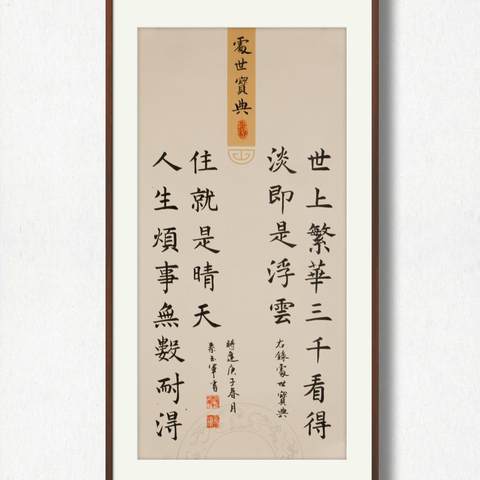 處世寶典
世上繁華三千看得
淡即是浮雲
右錄處世寶典
人生煩事無數耐得
住就是晴天
時逢庚子春月
秦玉軍書